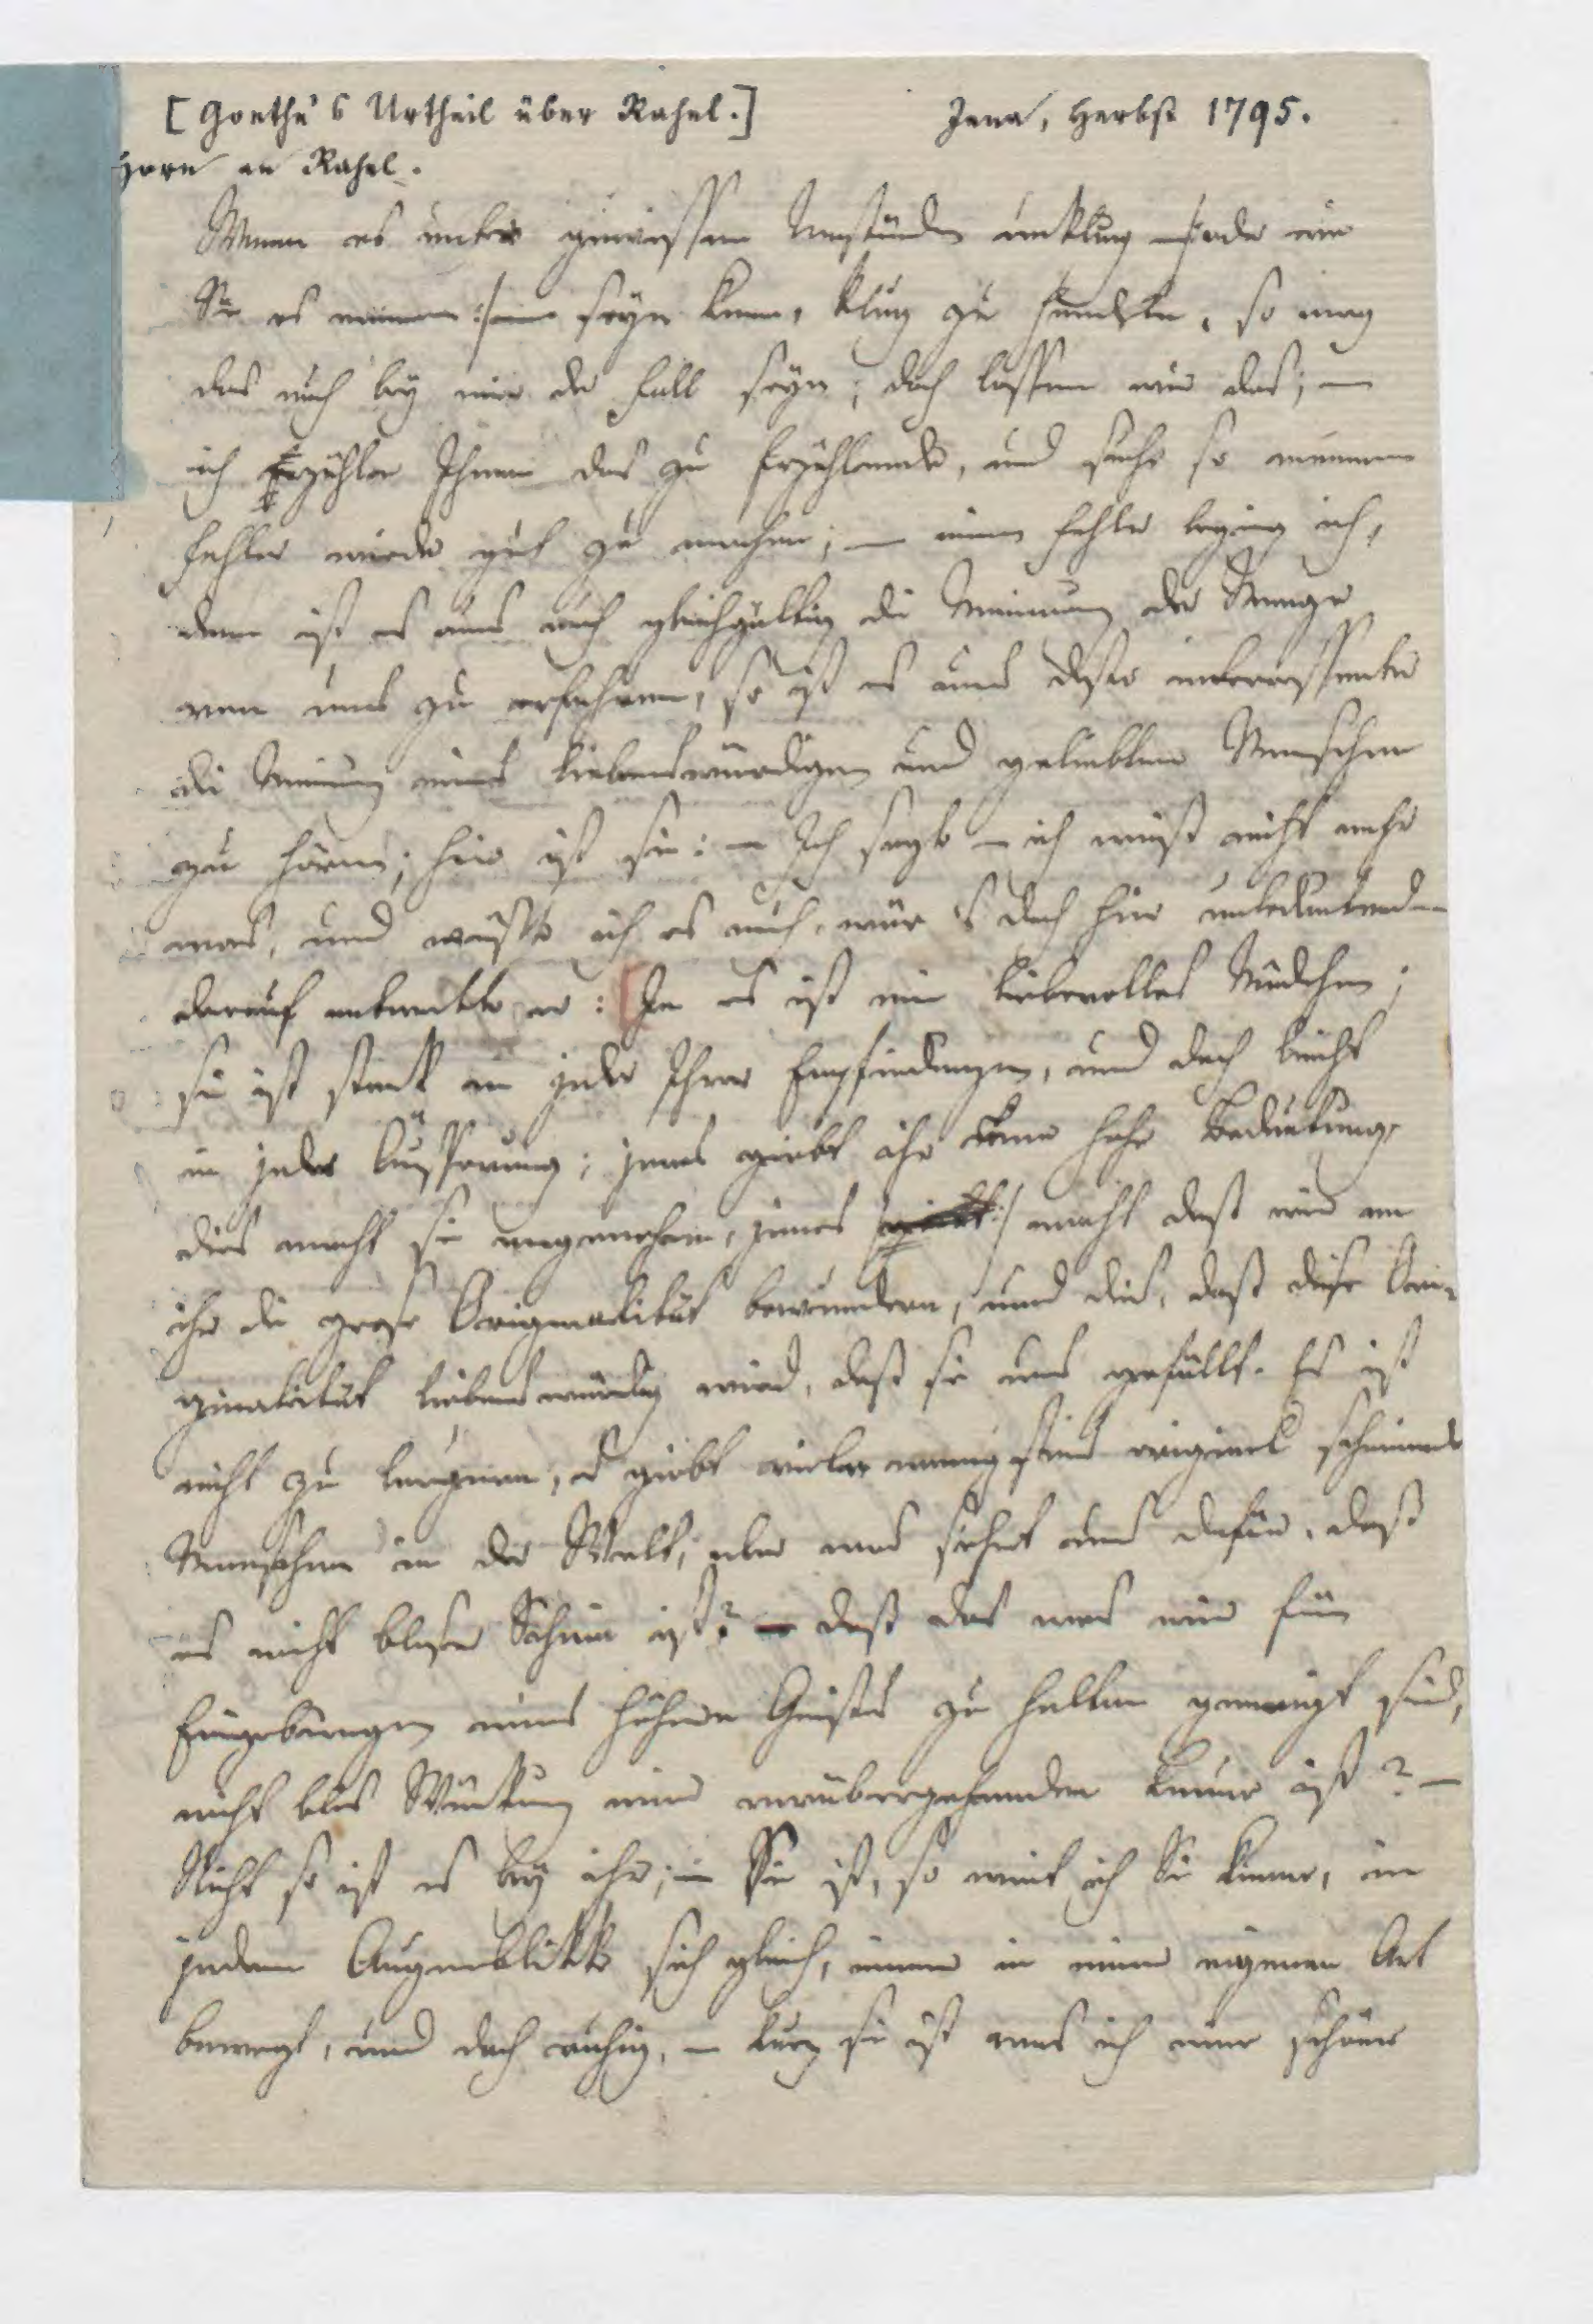 [Goethe's Urtheil über Rahel.] Jena, Herbst 1795.
Horn an Rahel.
Wenn es unter gewissen Umständen unklug oder wie
Sie es nennen seyn kann, klug zu handeln, so mag
das auch bey mir der Fall seyn; doch lassen wir das; —
ich Erzähle Ihnen das zu Erzählende, und suche so meinen
Fehler wieder gut zu machen; — einen Fehler beging ich,
denn ist es uns auch gleichgültig die Meinung der Menge
von uns zu erfahren, so ist es uns desto interessanter
die Meinung eines liebenswürdigen und geliebten Menschen
zu hören; hier ist sie: — Ich sagte — ich weiß nicht mehr
was, und wüßte ich es auch, wär's doch hier unbedeutend —
darauf antwortete er: [Ja es ist ein liebevolles Mädchen;
sie ist stark in jeder Ihrer Empfindungen, und doch leicht
in jeder Äusserung; jenes giebt ihr eine hohe Bedeutung,
dies macht sie angenehm, jenes macht daß wir an
ihr die grose Originalität bewundern, und dies, daß diese Ori-
ginalität liebenswürdig wird, daß sie uns gefällt. Es ist
nicht zu leugnen, es giebt viele wenigstens original scheinende
Menschen in der Welt; aber was sichert uns dafür, daß
es nicht bloser Schein ist? — daß das was wir für
Eingebungen eines höhern Geistes zu halten geneigt sind,
nicht blos Würkung einer vorübergehenden Laune ist? —
Nicht so ist es bey ihr; — Sie ist, so weit ich Sie kenne, in
jedem Augenblikke sich gleich, immer in einer eigenen Art
bewegt, und doch ruhig, — kurz sie ist was ich eine schöne